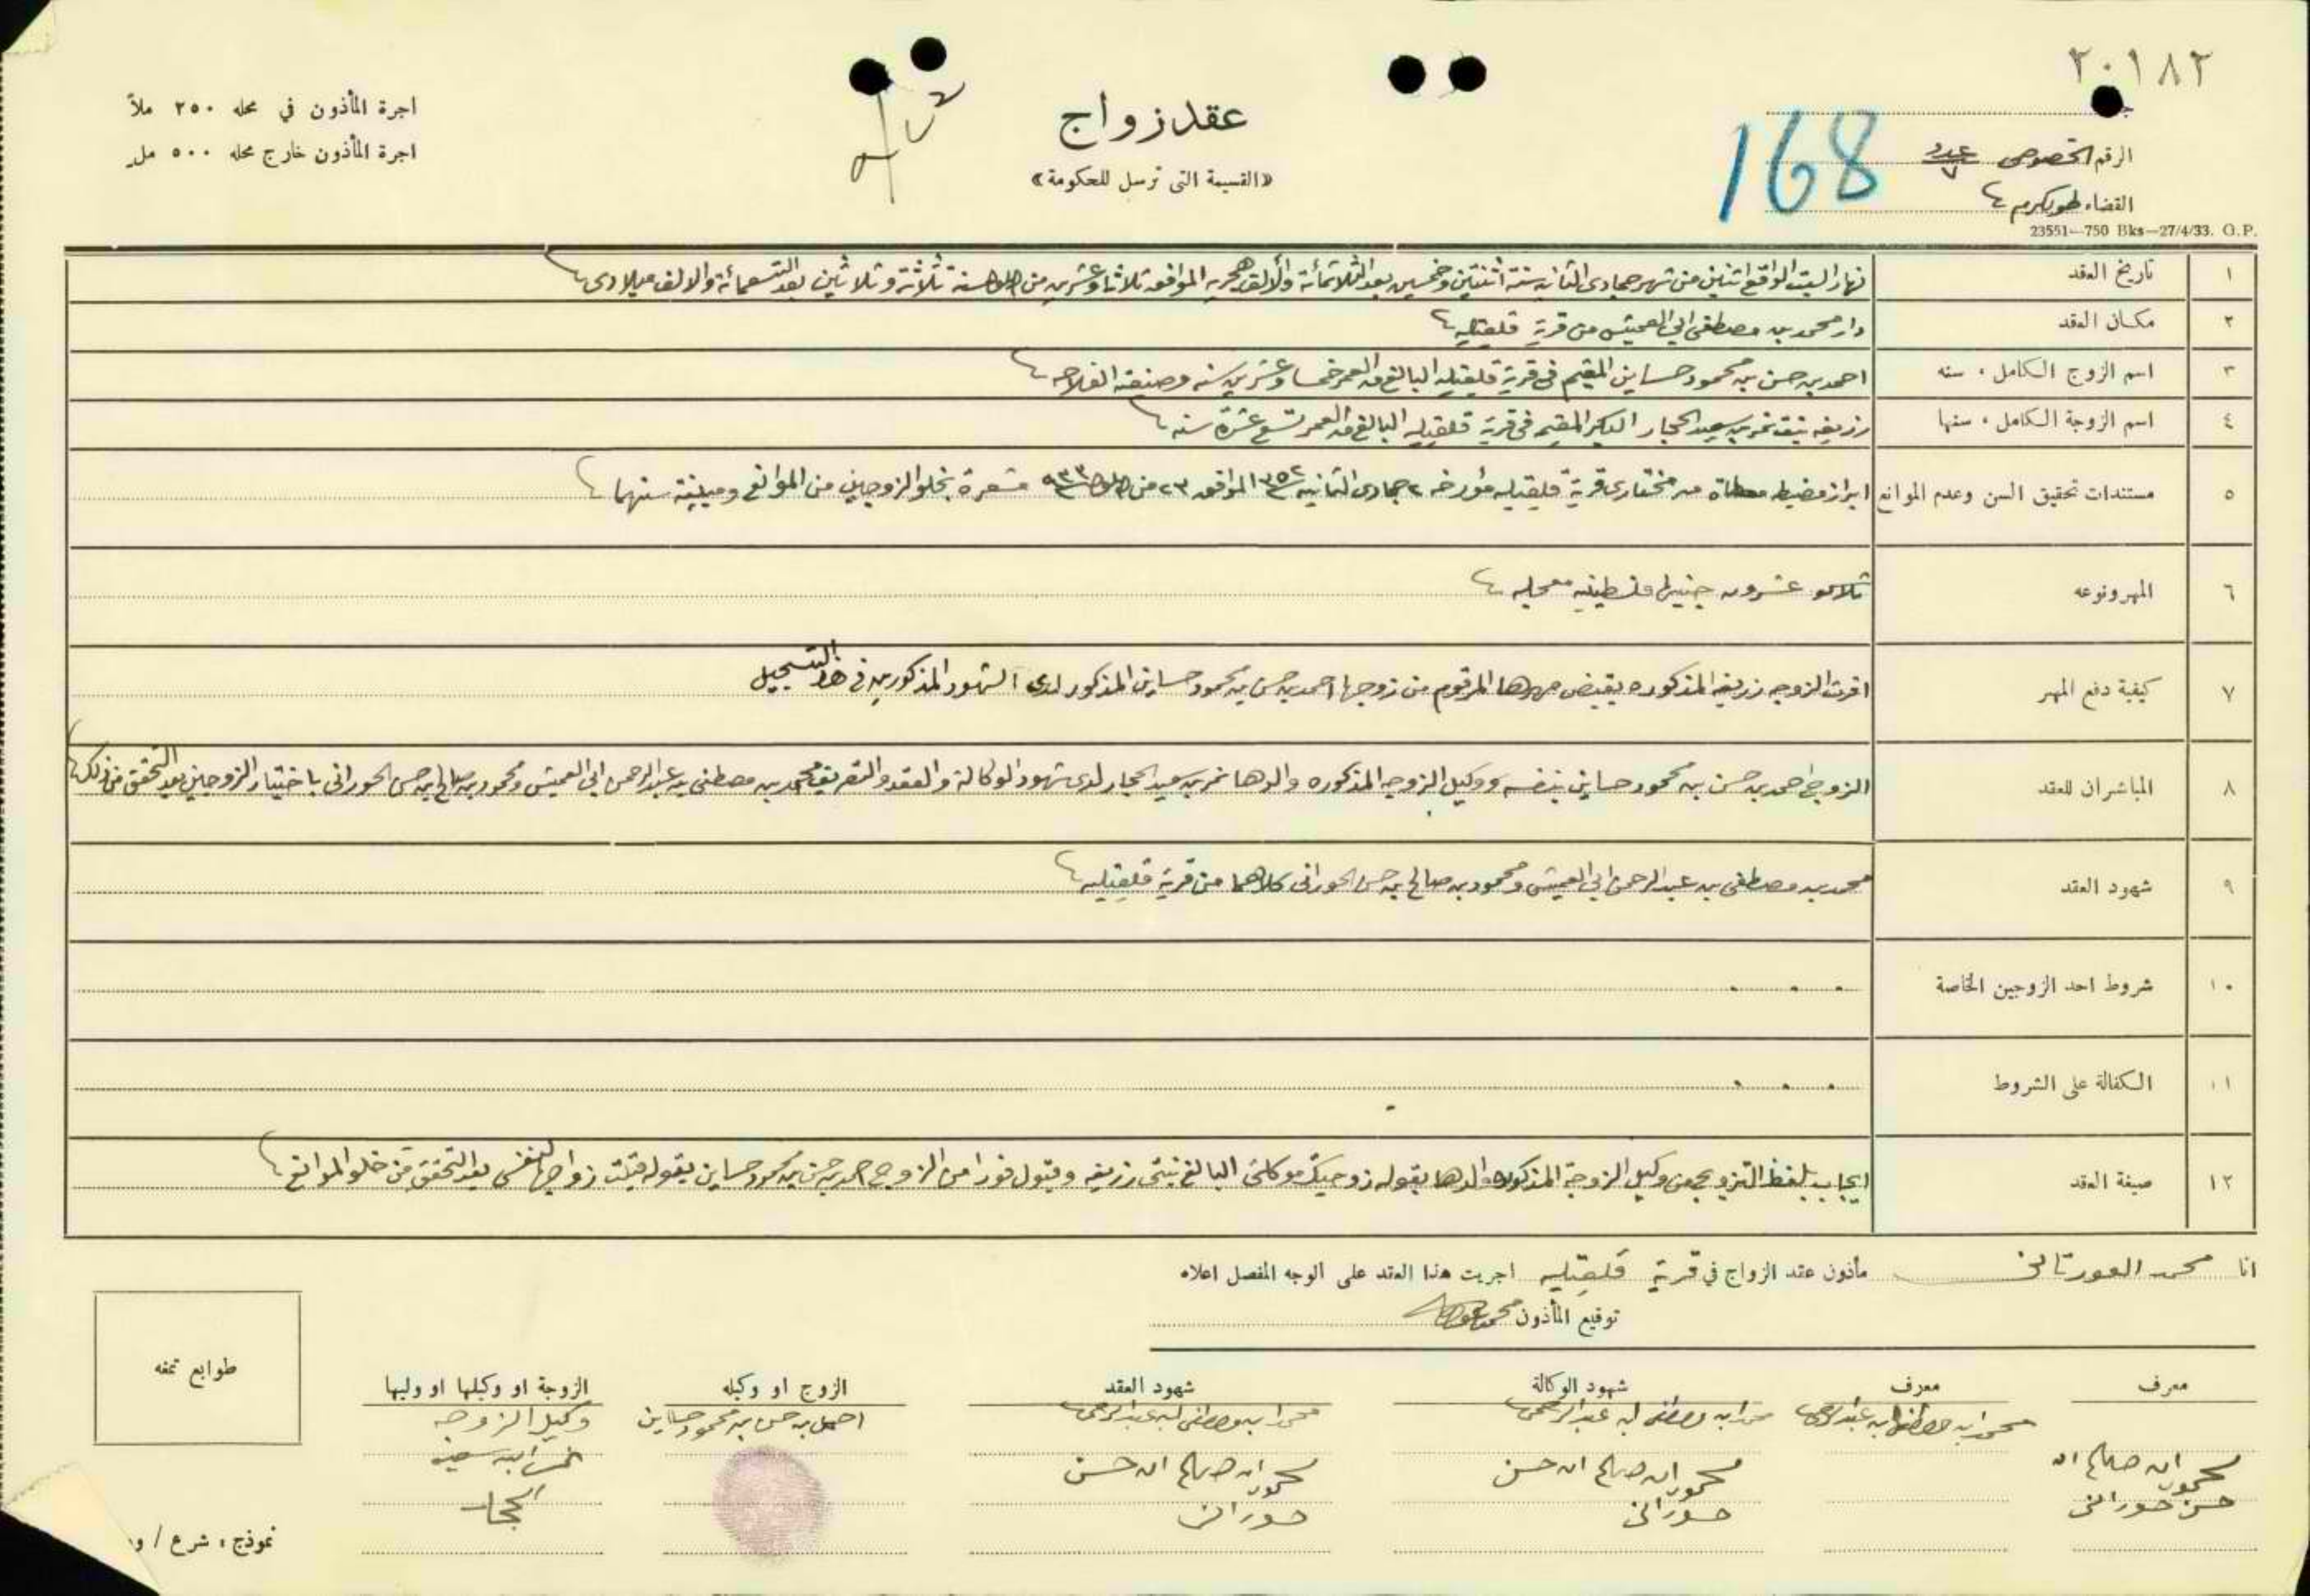 ٢٠١٨٢
اجرة المأذون في محله ٢٥٠ ملاً
اجرة المأذون خارج محله ٥٠٠ مل
عقد زواج
«القسيمة التي ترسل للحكومة»
الرقم الخصوصي عدد ٧
168
القضاء طولكرم
23551—750 Bks—27/4/33. O.P.
١ تاريخ العقد نهار السبت الواقع اثنين من شهر جمادى الثانيه سنة اثنتين وخمسين بعد الثلاثمائة والألف هجريه الموافق ثلاثا وعشرين من سنة ثلاثة وثلاثين بعد التسعمائة والالف ميلادى
٢ مكان العقد دار محمد بن مصطفى ابي العميش من قرية قلقيليه
٣ اسم الزوج الكامل، سنه احمد بن حسن بن محمود حساين المقيم في قرية قلقيليه البالغ من العمر خمسا وعشرين سنه وصنعته الفلاحه
٤ اسم الزوجة الكامل، سنها زريفه بنت نمر بن سعيد الحجار البكر المقيم في قرية قلقيليه البالغ من العمر تسع عشرة سنه
٥ مستندات تحقيق السن وعدم الموانع ابراز مضبطه معطاة من مختارى قرية قلقيليه مؤرخه ٢ جمادى الثانيه سنة ٣٥٢ الموافق ٢٣ من سنة ٩٣٣ مشعرة بخلو الزوجين من الموانع ومبينة سنهما
٦ المهر ونوعه عشرون جنيها فلسطينيه معجليه
٧ كيفية دفع المهر اقرت الزوجه زريفه المذكوره بقبض مهرها المرقوم من زوجها احمد بن حسن بن محمود حساين المذكور لدى الشهود المذكورين في هذا التسجيل
٨ المباشران للعقد الزوج احمد بن حسن بن محمود حساين بنفسه ووكيل الزوجه المذكوره والدها نمر بن سعيد الحجار لدى شهود الوكالة والعقد والتعريف محمد بن مصطفى بن عبد الرحمن ابي العميش ومحمود بن صالح بن حسن الحوراني باختيار الزوجين بعد التحقق من ذلك
٩ شهود العقد محمد بن مصطفى بن عبد الرحمن ابي العميش ومحمود بن صالح بن حسن الحوراني كلاهما من قرية قلقيليه
١٠ شروط احد الزوجين الخاصة . . .
١١ الكفالة على الشروط . . .
١٢ صيغة العقد ايجاب بلفظ التزويج من وكيل الزوجة المذكوره والدها بقوله زوجتك موكلتي البالغ بنتي زريفه وقبول فورا من الزوج احمد بن حسن بن محمود حساين بقوله قبلت زواجها لنفسي بعد التحقق من خلو الموانع
انا محمد مأذون عقد الزواج في قرية قلقيليه اجريت هذا العقد على الوجه المفصل اعلاه
توقيع المأذون
معرف معرف شهود الوكالة شهود العقد الزوج او وكيله الزوجة او وكيلها او وليها
محمد ابن مصطفى ابن عبد الرحمن محمد ابن مصطفى ابن عبد الرحمن محمد ابن مصطفى ابن عبد الرحمن احمد بن حسن بن محمود حساين وكيل الزوجه
محمود ابن صالح ابن محمود ابن صالح ابن حسن محمود ابن صالح ابن حسن نمر ابن سعيد
حسن حوراني حوراني حوراني الحجار
طوابع تمغه
نموذج، شرع / و